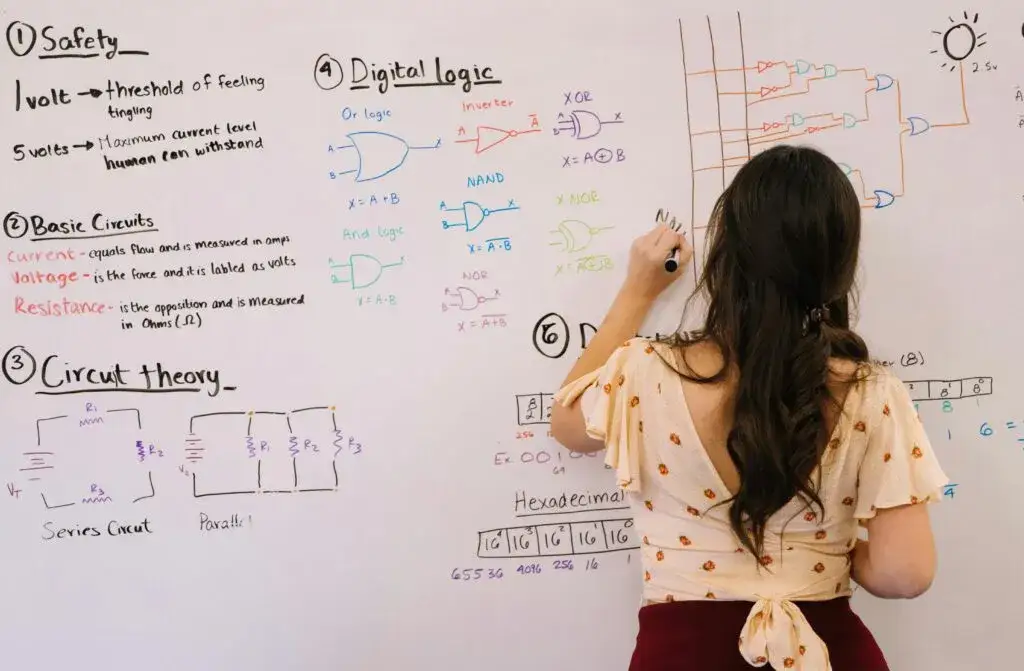 ① Safety
1 volt → threshold of feeling
tingling
5 volts → Maximum current level
human can withstand
② Basic Circuits
Current - equals flow and is measured in amps
Voltage - is the force and it is labled as volts
Resistance - is the opposition and is measured
in Ohms (Ω)
③ Circut theory
R1
R2
R3
VT
Series Circut
R1
R2
R3
Parallel
④ Digital logic
Or logic
A
B
X
X = A + B
And logic
X = A·B
Inverter
A
A̅
NAND
A
B
X
X = A̅·̅B̅
NOR
X
X = A̅+̅B̅
XOR
A
B
X
X = A ⊕ B
XNOR
2.5v
NA
⑤ D
(8)
8²
256
Ex. 001
64
8¹
8⁰
8
1
1
6 =
4
Hexadecimal
16⁴ 16³ 16² 16¹ 16⁰
65536 4096 256 16 1